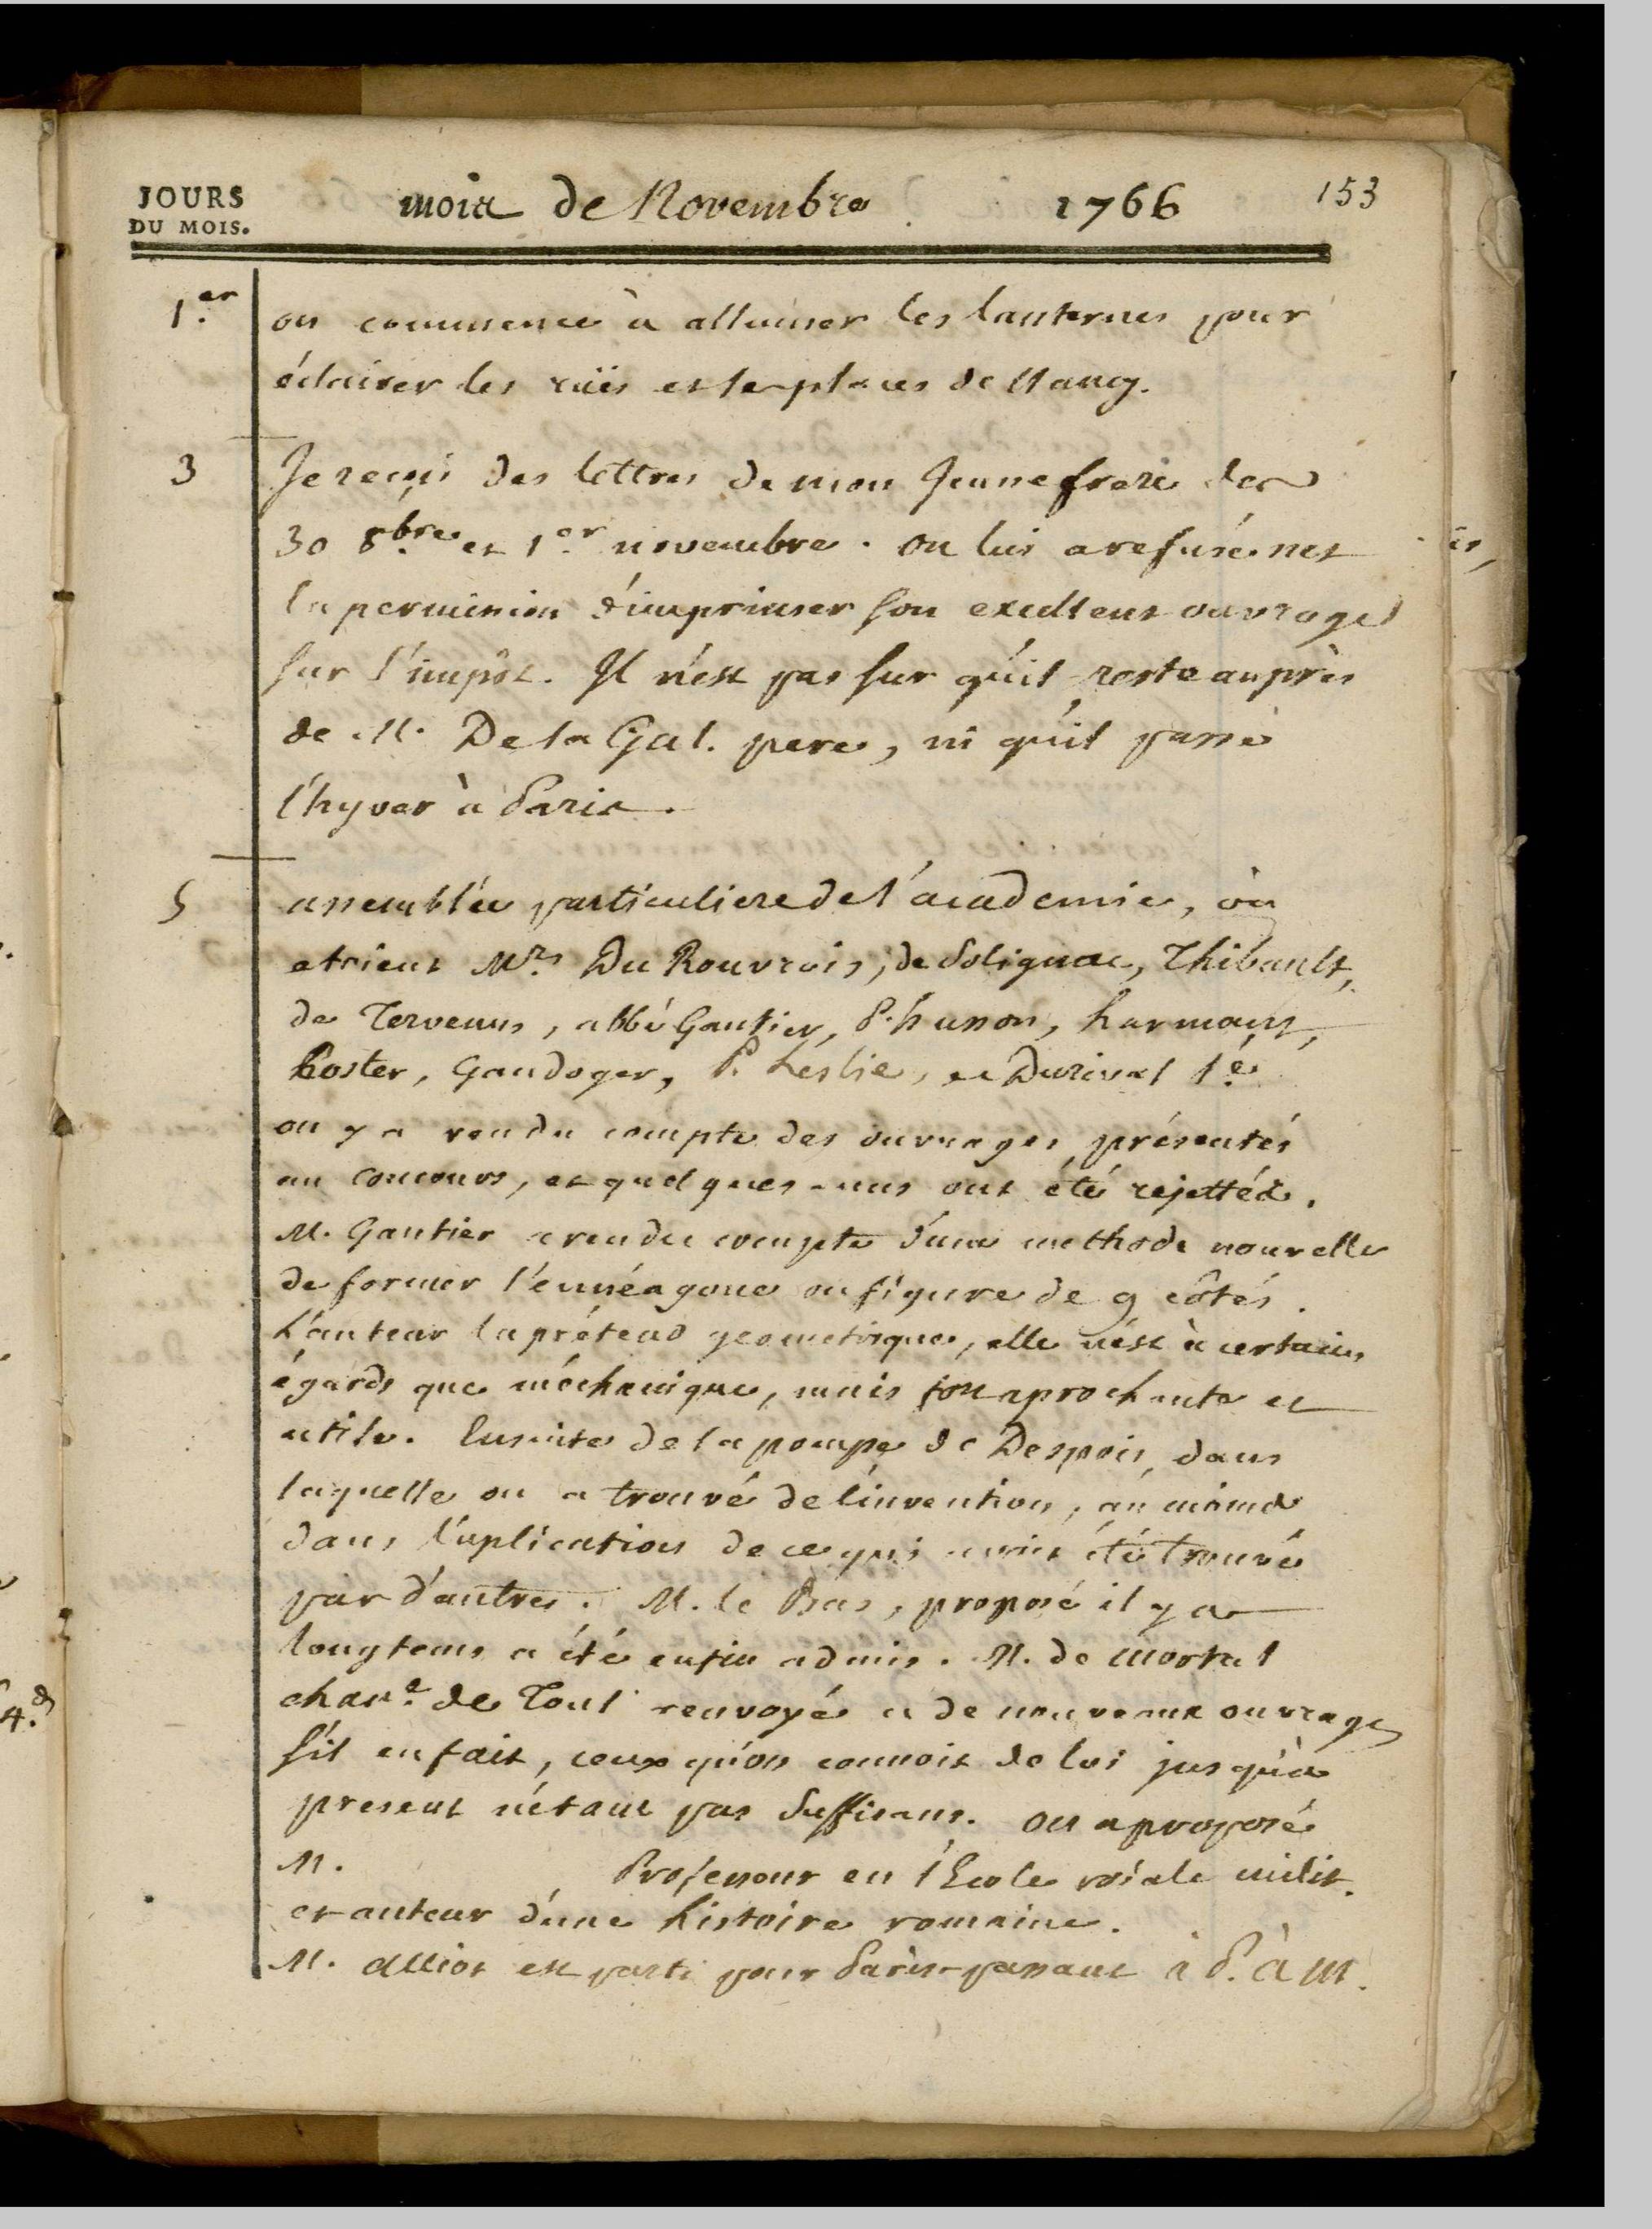 JOURS
DU MOIS.
mois de Novembre 1766 153
1.er on commence à allumer les lanternes pour
éclairer les rües et les places de Nancy.
3 Je reçois des lettres de mon Jeune frere des
30 8.bre et 1.er novembre. on lui a refusé net
la permission d'imprimer son excellent ouvrage
sur l'impôt. Il n'est pas sur qu'il reste auprès
de M. De la Gal. pere, ni qu'il passe
l'hyver à Paris.
5 assemblée particuliere de l'academie, où
etoient Mrs Du Rouvrois, de Solignac, Thibault,
de Tervenus, abbé Gautier, P. husson, harmant,
Coster, Gandoger, P. Leslie, et Durival l'é
on y a rendu compte des ouvrages présentés
au concours, et quelques-uns ont été rejettés.
M. Gautier a rendu compte d'une methode nouvelle
de former l'ennéagone ou figure de 9 côtés.
L'auteur la prétend geometrique, elle n'est à certains
égards que méchanique, mais fort aprochante et
utile. Ensuite de la pompe de Despois, dans
laquelle on a trouvé de l'invention, au moins
dans l'aplication de ce qui avoit été trouvé
par d'autres. M. le Bas, proposé il y a
longtems a été enfin admis. M. de Mortal
chan.e de Toul renvoyé a de nouveaux ouvrages
s'il en fait, ceux qu'on connoit de lui jusqu'à
present n'étant pas suffisans. on a proposé
M. Professeur en l'Ecole roiale milit.
et auteur d'une histoire romaine.
M. alliot est parti pour Paris passant à P. à M.